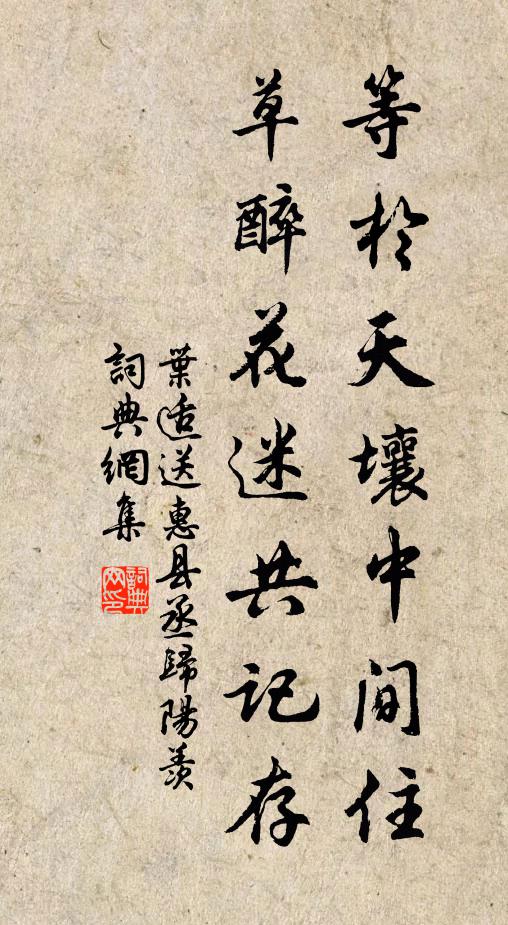 等於天壤中間住
草醉花迷共記存
葉适送惠县丞歸陽羨
詞典網集
詞典网印